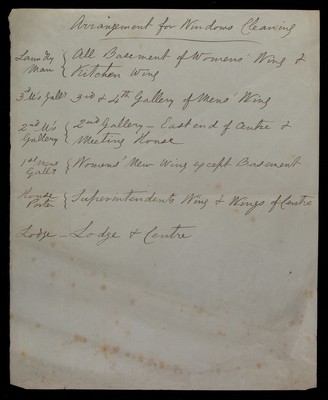 Arrangement for Windows Cleaning
Laundry Man { All Basement of Womens' Wing &
Kitchen Wing
3rd M's Gall's 3rd & 4th Gallery of Mens' Wing
2nd M's Gallery { 2nd Gallery - East end of Centre &
Meeting House
1st Gall's { Womens' New Wing except Basement
House Porter { Superintendents Wing & Wings of Centre
Lodge - Lodge & Centre